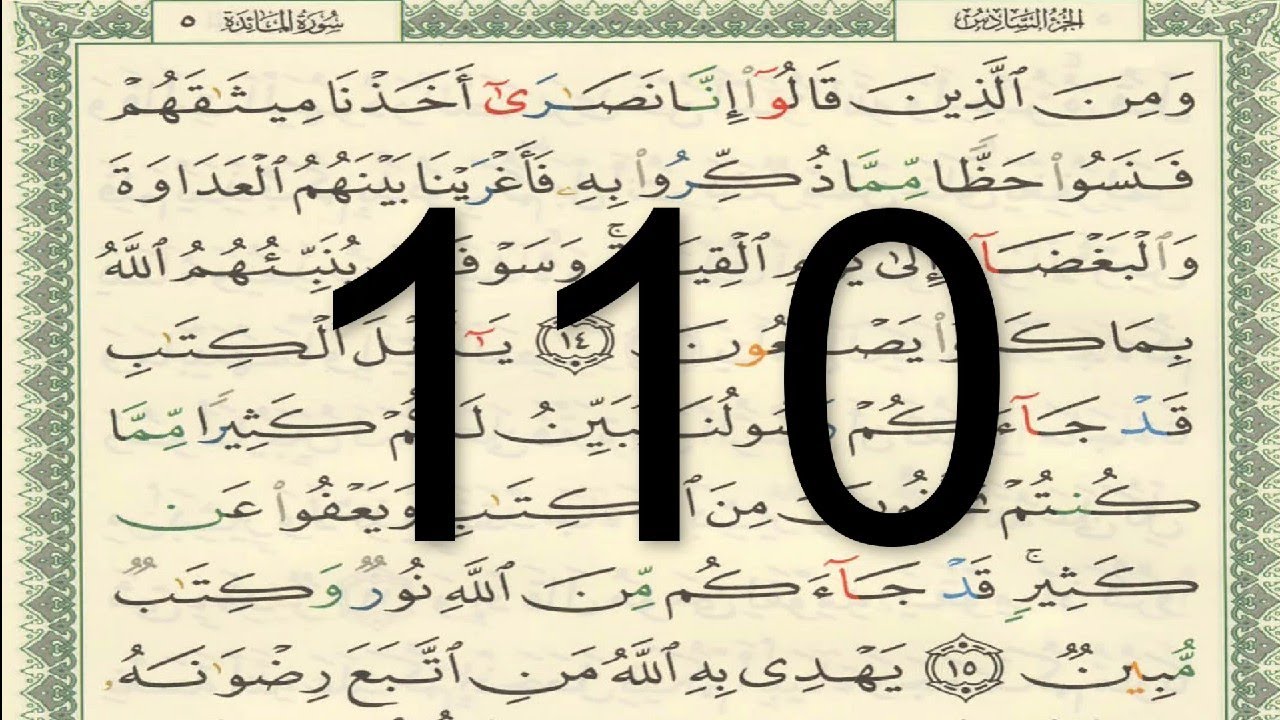 سُورَةُ المَائِدَةِ ٥
الجُزْءُ السَّادِسُ
وَمِنَ ٱلَّذِينَ قَالُوٓا۟ إِنَّا نَصَـٰرَىٰٓ أَخَذْنَا مِيثَـٰقَهُمْ
فَنَسُوا۟ حَظًّا مِّمَّا ذُكِّرُوا۟ بِهِۦ فَأَغْرَيْنَا بَيْنَهُمُ ٱلْعَدَاوَةَ
وَٱلْبَغْضَآءَ إِلَىٰ يَوْمِ ٱلْقِيَـٰمَةِ ۚ وَسَوْفَ يُنَبِّئُهُمُ ٱللَّهُ
بِمَا كَانُوا۟ يَصْنَعُونَ ١٤ يَـٰٓأَهْلَ ٱلْكِتَـٰبِ
قَدْ جَآءَكُمْ رَسُولُنَا يُبَيِّنُ لَكُمْ كَثِيرًا مِّمَّا
كُنتُمْ تُخْفُونَ مِنَ ٱلْكِتَـٰبِ وَيَعْفُوا۟ عَن
كَثِيرٍ ۚ قَدْ جَآءَكُم مِّنَ ٱللَّهِ نُورٌ وَكِتَـٰبٌ
مُّبِينٌ ١٥ يَهْدِى بِهِ ٱللَّهُ مَنِ ٱتَّبَعَ رِضْوَٰنَهُۥ
110